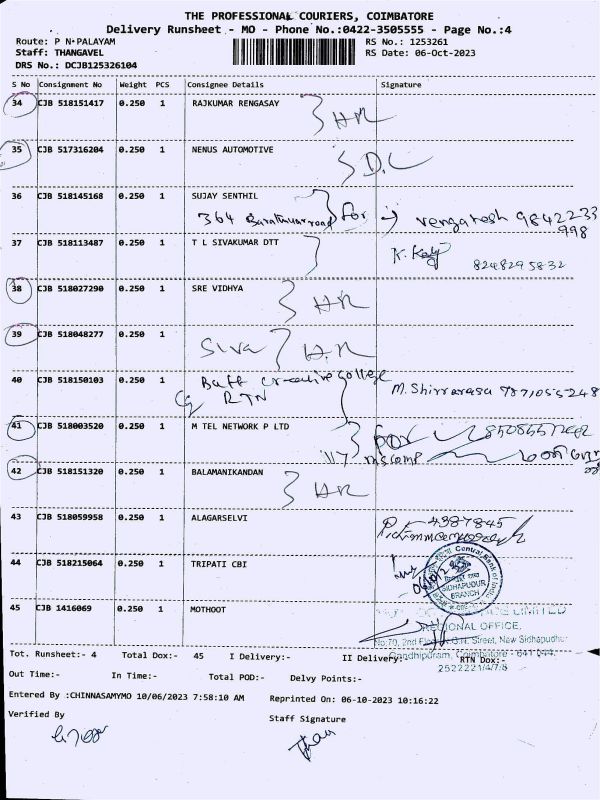 THE PROFESSIONAL COURIERS, COIMBATORE
Delivery Runsheet - MO - Phone No.:0422-3505555 - Page No.:4
Route: P N PALAYAM
RS No.: 1253261
Staff: THANGAVEL
RS Date: 06-Oct-2023
DRS No.: DCJB125326104
S No Consignment No Weight PCS Consignee Details Signature
34 CJB 518151417 0.250 1 RAJKUMAR RENGASAY
35 CJB 517316204 0.250 1 NENUS AUTOMOTIVE
D.C
36 CJB 518145168 0.250 1 SUJAY SENTHIL
364 for vengatesh 9842233
998
37 CJB 518113487 0.250 1 T L SIVAKUMAR DTT
8248295832
38 CJB 518027290 0.250 1 SRE VIDHYA
39 CJB 518048277 0.250 1
Siva
40 CJB 518150103 0.250 1 college
RTN
41 CJB 518003520 0.250 1 M TEL NETWORK P LTD
for
42 CJB 518151320 0.250 1 BALAMANIKANDAN
43 CJB 518059958 0.250 1 ALAGARSELVI
4387845
44 CJB 518215064 0.250 1 TRIPATI CBI
Central Bank of India
SIDHAPUDUR
BRANCH
45 CJB 1416069 0.250 1 MOTHOOT
LIMITED
REGIONAL OFFICE,
Street, New Sidhapudhur
Gandhipuram, Coimbatore - 641 044.
2522221/4/7/8
Tot. Runsheet:- 4 Total Dox:- 45 I Delivery:- II Delivery:- RTN Dox:-
Out Time:- In Time:- Total POD:- Delvy Points:-
Entered By :CHINNASAMYMO 10/06/2023 7:58:10 AM Reprinted On: 06-10-2023 10:16:22
Verified By
Staff Signature